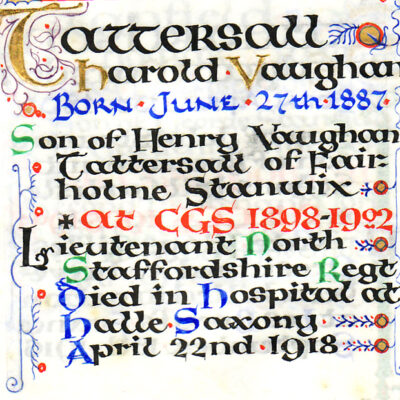 Tattersall
Harold · Vaughan
Born · June · 27th · 1887 ·
Son of Henry Vaughan
Tattersall of Fair-
holme Stanwix
✠ at CGS 1898-1902
Lieutenant North
Staffordshire Regt
Died in Hospital at
Halle · Saxony ·
April 22nd 1918